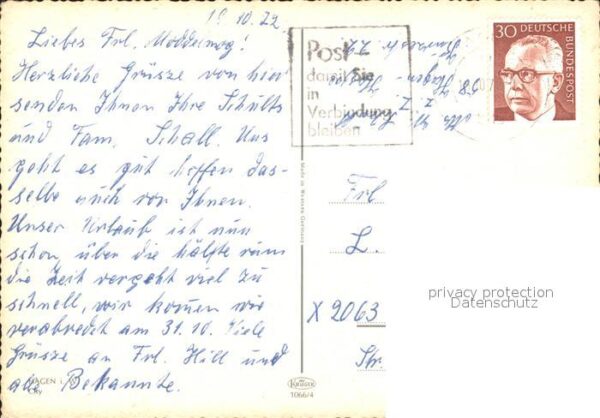 18.10.72
Liebes Frl.
Herzliche Grüsse von hier
senden Ihnen Ihre Schults
und Fam. Schall. Uns
geht es gut hoffen das-
selbe auch von Ihnen.
Unser Urlaub ist nun
schon über die hälfte rum
die Zeit vergeht viel zu
schnell, wir komen wie
verabredet am 31.10. Viele
Grüsse an Frl. Hill und
alle Bekannte.
Post
damit Sie
in
Verbindung
bleiben
30 DEUTSCHE
BUNDESPOST
Made in Western Germany
Frl
L.
X 2063
Str.
privacy protection
Datenschutz
KRÜGER
1066/4